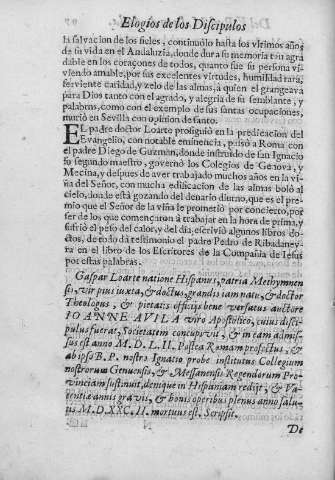 Elogios de los Discipulos
la salvacion de los fieles, continuólo hasta los vltimos años
de su vida en el Andaluzia, donde dura su memoria tan agra
dable en los coraçones de todos, quanto fue su persona vi-
viendo amable, por sus excelentes virtudes, humildad rara,
ferviente caridad, y zelo de las almas, á quien el grangeava
para Dios tanto con el agrado, y alegria de su semblante, y
palabras, como con el exemplo de sus santas ocupaciones,
murió en Sevilla con opinion de santo.
EL padre doctor Loarte prosiguió en la predicacion del
Evangelio, con notable eminencia, passó a Roma con
el padre Diego de Guzmàn, donde instruido de san Ignacio
su segundo maestro, governò los Colegios de Genova, y
Mecina, y despues de aver trabajado muchos años en la vi-
ña del Señor, con mucha edificacion de las almas boló al
cielo, donde está gozando del denario diurno, que es el pre-
mio que el Señor de la viña le prometió por concierto, por
ser de los que començaron â trabajar en la hora de prima, y
sufrió el peso del calor, y del dia, escrivió algunos libros do-
ctos, de todo dá testimonio el padre Pedro de Ribadaney-
ra en el libro de los Escritores de la Compañia de Iesus
por estas palabras.
Gaspar Loarte natione Hispanus, patria Methymnen
sis, vir pius iuxta, & doctus, grandis iam natu, & doctor
Theologus, & pietatis officijs bene versatus auctore
IOANNE AVILA viro Apostolico, cuius disci-
pulus fuerat, Societatem concupivit, & in eam admis-
sus est anno M.D.L.II. Postea Romam profectus, &
ab ipso B.P. nostro Ignatio probe institutus Collegium
nostrorum Genuensis, & Messanensis Regendorum Pro-
vinciam sustinuit, denique in Hispaniam redijt, & Va-
lentiæ annis gravis, & bonis operibus plenus anno salu-
tis M.D.XXC.II. mortuus est. Scripsit.
De